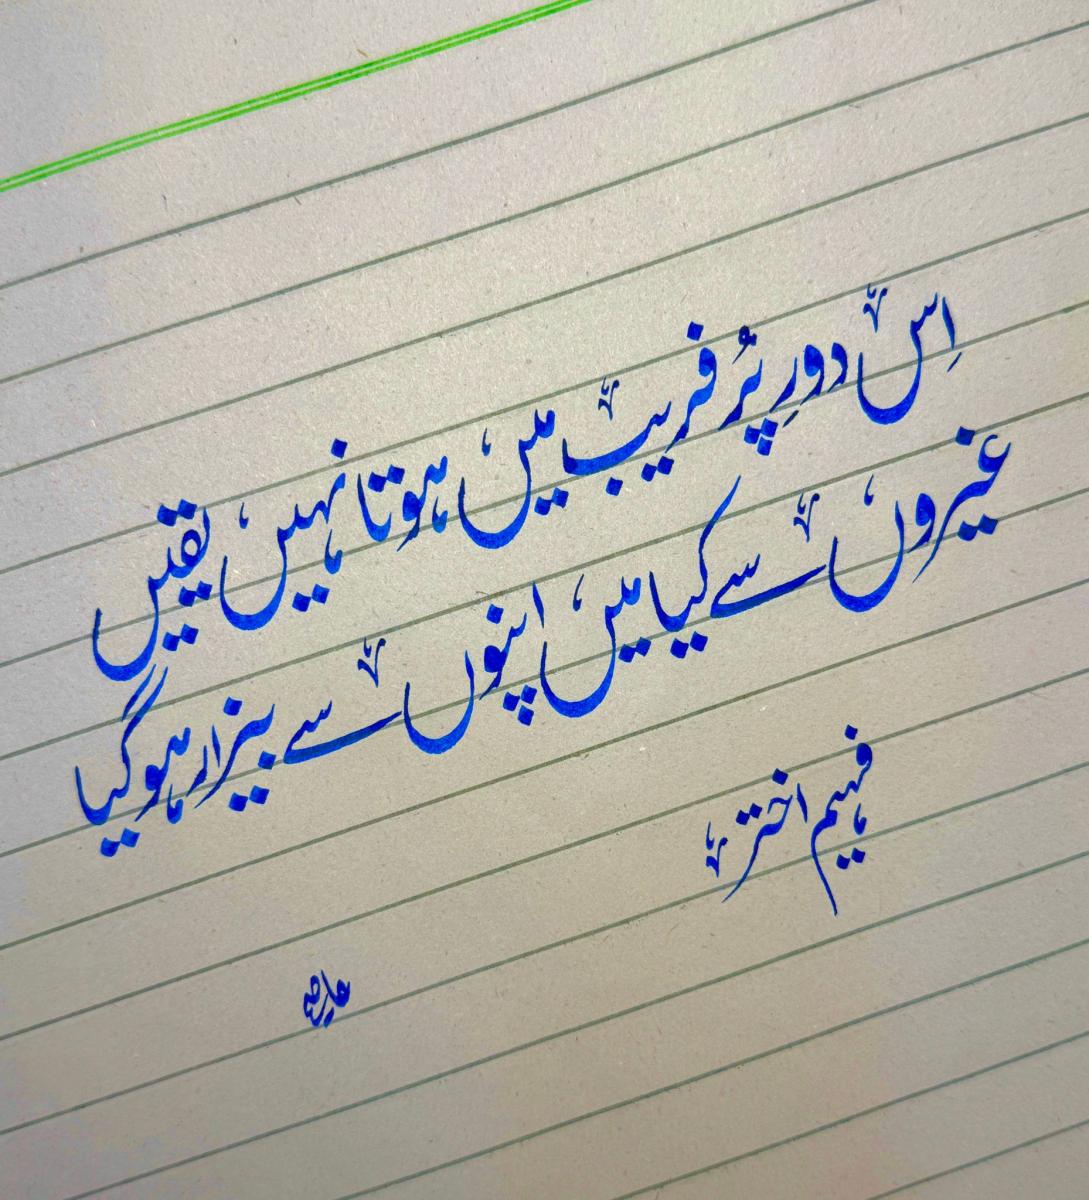 اِس دورِ پُر فریب میں ہوتا نہیں یقیں
غیروں سے کیا میں اپنوں سے بیزار ہو گیا
فہیم اختر